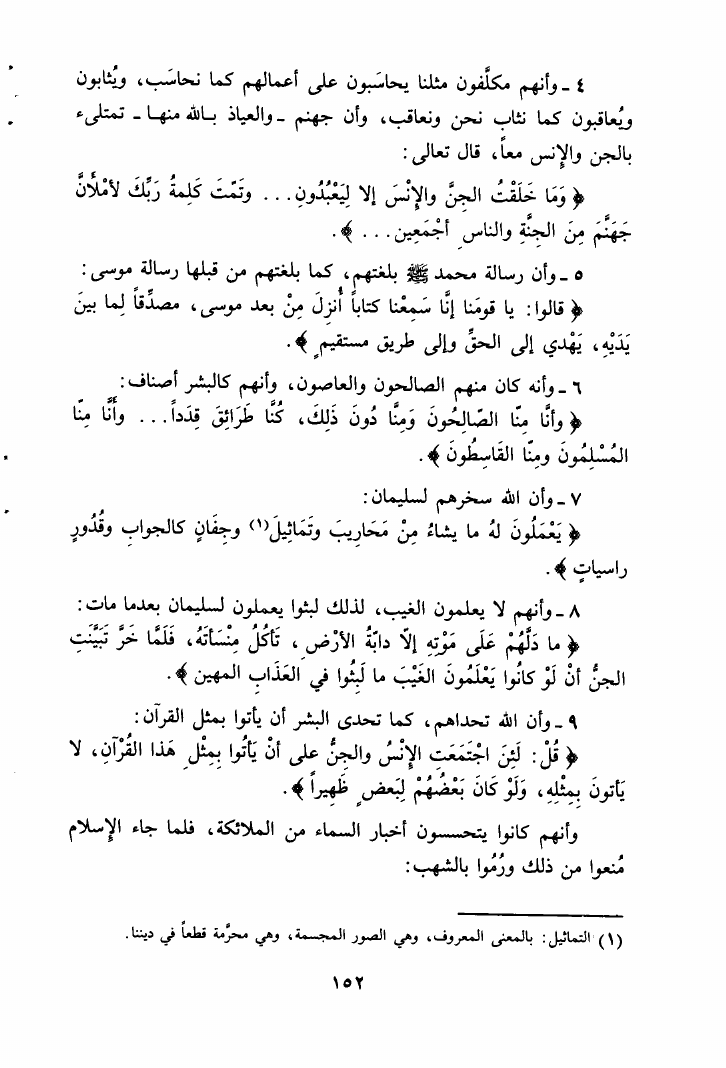 ٤ ـ وأنهم مكلَّفون مثلنا يحاسَبون على أعمالهم كما نحاسَب، ويُثابون
ويُعاقبون كما نثاب نحن ونعاقب، وأن جهنم ـ والعياذ بـالله منهـا ـ تمتلىء
بالجن والإنس معاً، قال تعالى:
﴿ وَمَا خَلَقْتُ الجِنَّ والإنْسَ إلا لِيَعْبُدُونِ... وتَمّتَ كَلِمةُ رَبِّكَ لأمْلَأنَّ
جَهَنَّمَ مِنَ الجِنَّةِ والناسِ أجْمَعِين... ﴾.
٥ ـ وأن رسالة محمد ﷺ بلغتهم، كما بلغتهم من قبلها رسالة موسى:
﴿ قالوا: يا قومَنا إنَّا سَمِعْنا كتاباً أُنزِلَ مِنْ بعد موسى، مصدِّقاً لِما بينَ
يَدَيْهِ، يَهْدي إلى الحقِّ وإلى طريق مستقيمٍ ﴾.
٦ ـ وأنه كان منهم الصالحون والعاصون، وأنهم كالبشر أصناف:
﴿ وأنَّا مِنّا الصّالِحُونَ وَمِنَّا دُونَ ذَلِكَ، كُنَّا طَرَائِقَ قِدَداً... وأنَّا مِنّا
المُسْلِمُونَ ومِنّا القَاسِطُونَ ﴾.
٧ ـ وأن الله سخرهم لسليمان:
﴿ يَعْمَلُونَ لهُ ما يشاءُ مِنْ مَحَاريبَ وتَمَاثِيلَ(١) وجِفَانٍ كالجوابِ وقُدُورٍ
راسياتٍ ﴾.
٨ ـ وأنهم لا يعلمون الغيب، لذلك لبثوا يعملون لسليمان بعدما مات:
﴿ ما دَلَّهُمْ عَلَى مَوْتِهِ إلاّ دابّةُ الأرْضِ، تَأكُلُ مِنْسَأتَهُ، فَلَمَّا خَرَّ تَبَيَّنَتِ
الجنُّ أنْ لَوْ كانُوا يَعْلَمُونَ الغَيْبَ ما لَبِثُوا في العَذَابِ المهين ﴾.
٩ ـ وأن الله تحداهم، كما تحدى البشر أن يأتوا بمثل القرآن:
﴿ قُلْ: لَئِنَ اجْتَمَعَتِ الإنْسُ والجِنُّ على أنْ يَأتُوا بِمِثْلِ هَذا القُرْآنِ، لا
يَأتونَ بِمِثْلِهِ، وَلَوْ كَانَ بَعْضُهُمْ لِبَعضٍ ظَهِيراً ﴾.
وأنهم كانوا يتحسسون أخبار السماء من الملائكة، فلما جاء الإسلام
مُنعوا من ذلك ورُمُوا بالشهب:
(١) التماثيل: بالمعنى المعروف، وهي الصور المجسمة، وهي محرَّمة قطعاً في ديننا.
١٥٢